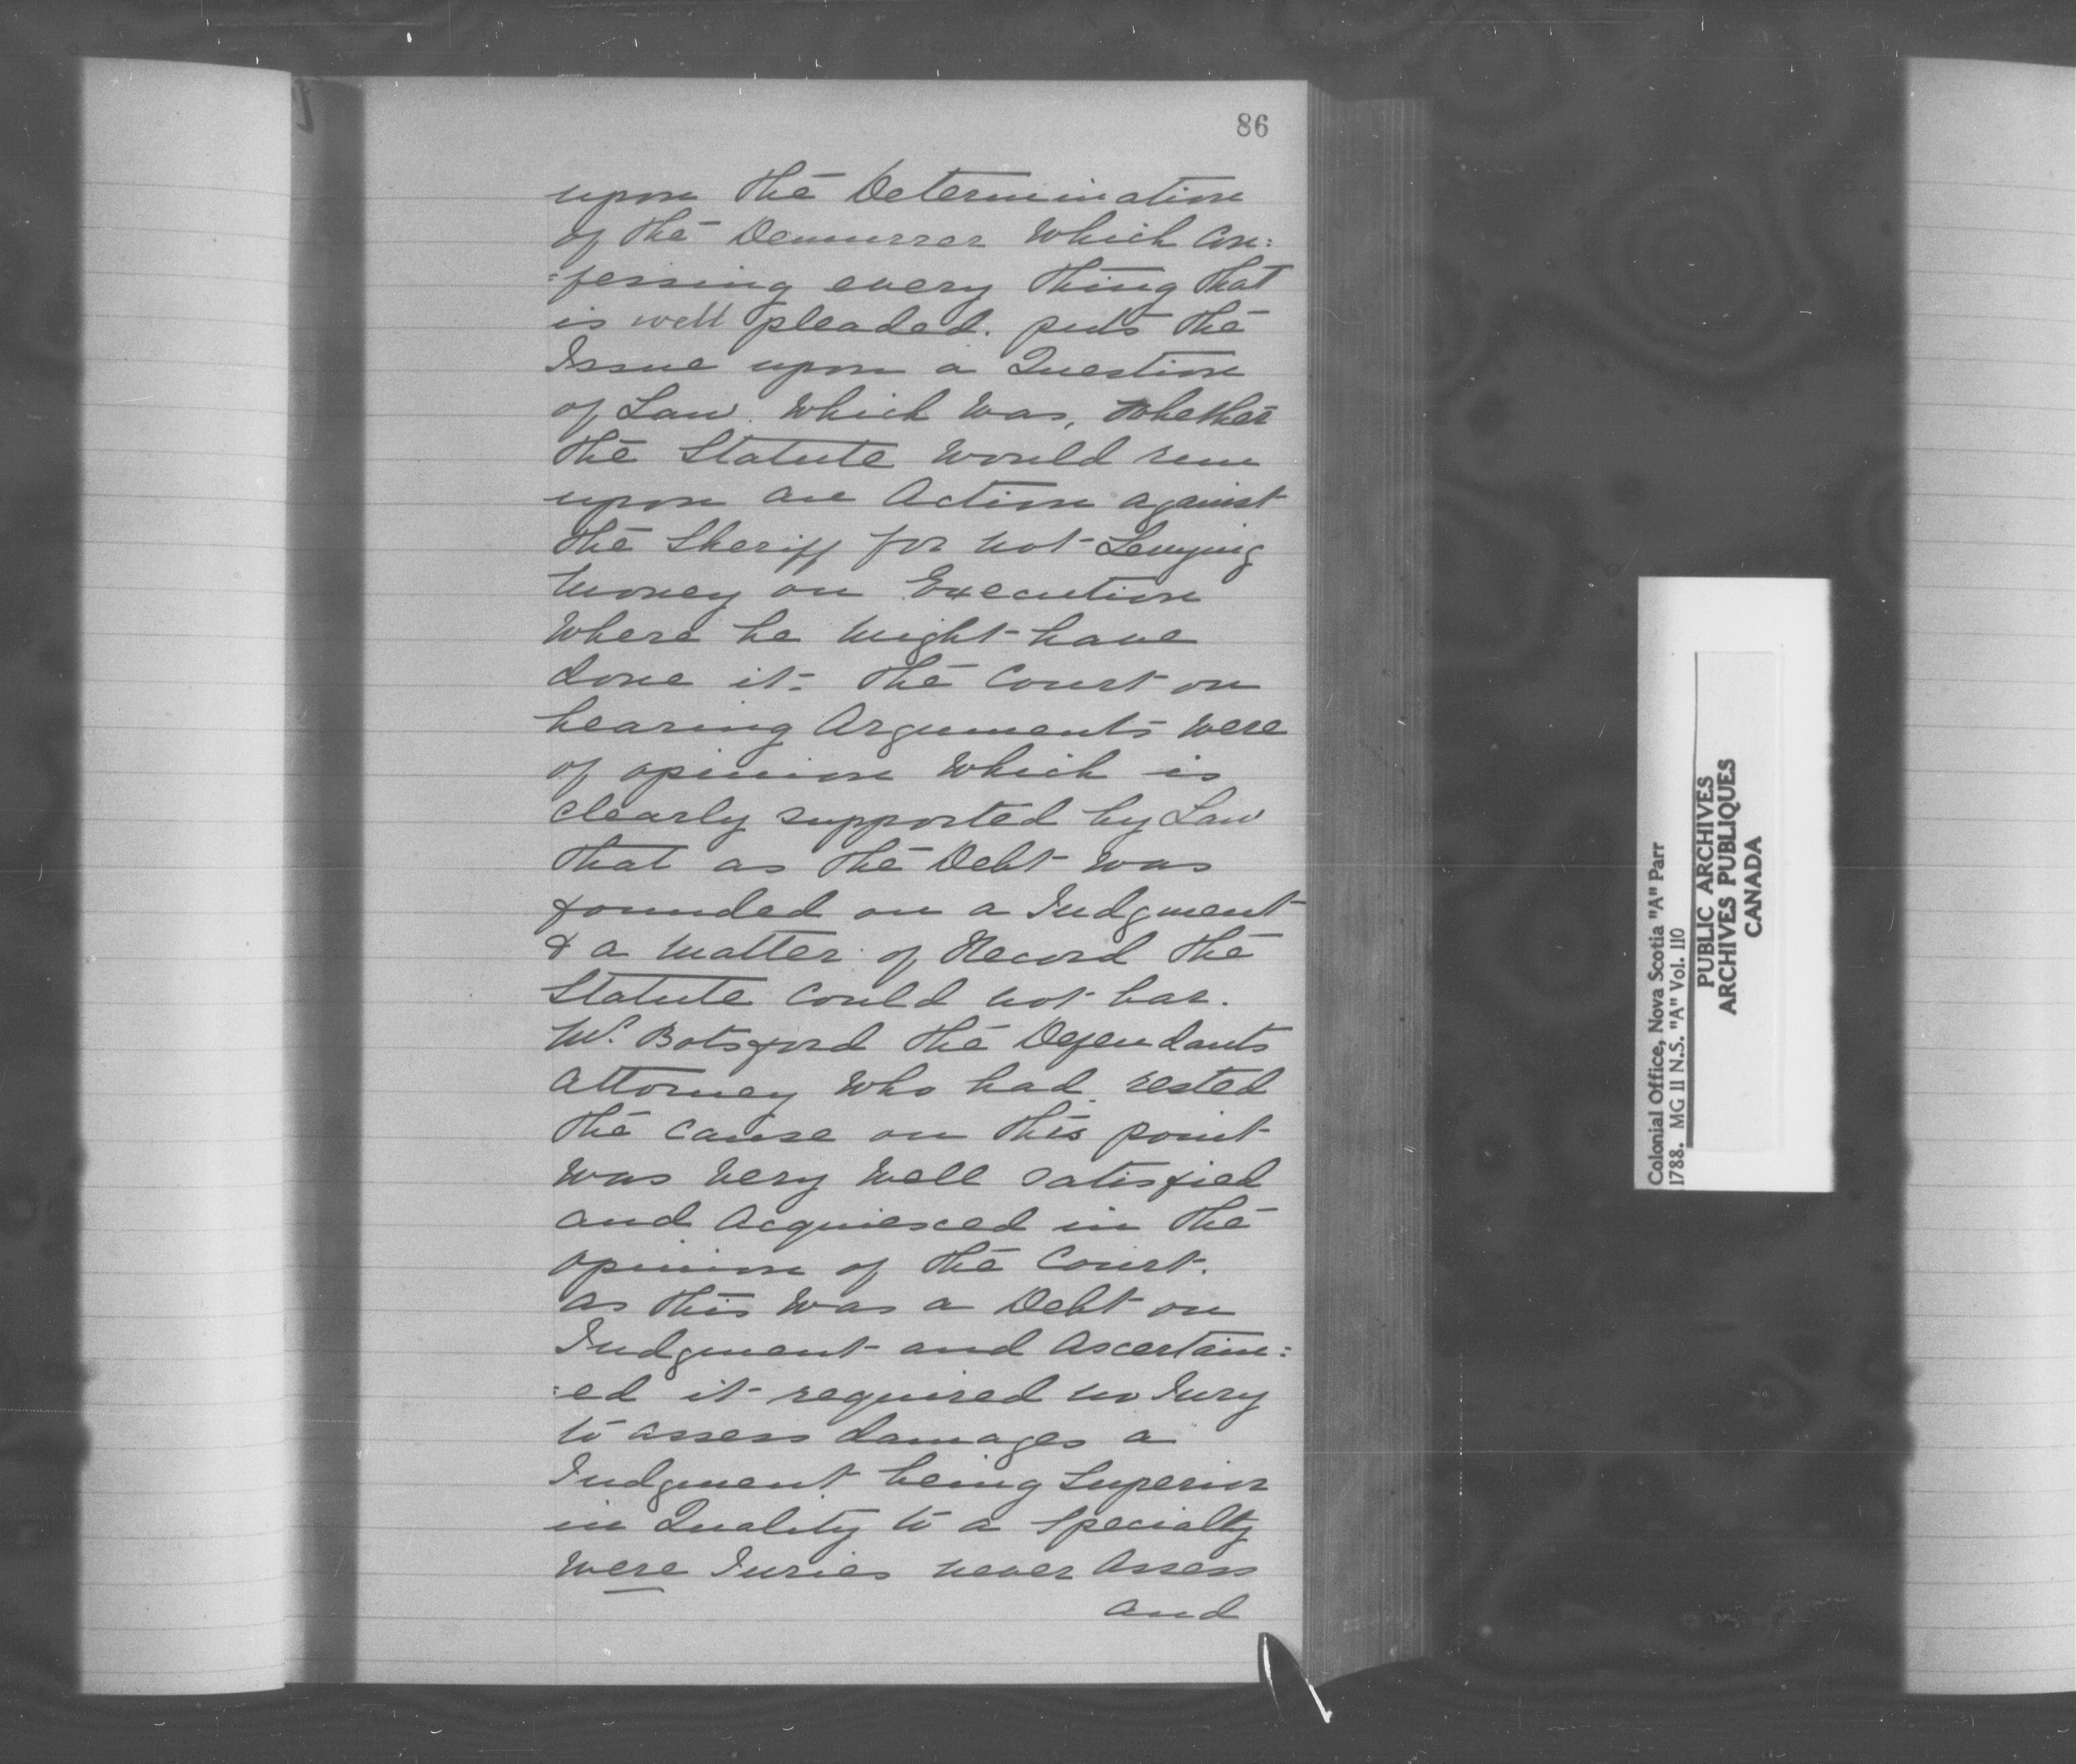 86
upon the Determination
of the Demurrer which Con:
=fessing every thing that
is well pleaded. puts the
Issue upon a Question
of Law. which was, whether
the Statute would run
upon an Action against
the Sheriff for not Levying
money on Execution
where he might have
done it- The Court on
hearing Arguments were
of opinion which is
clearly supported by Law
that as the Debt was
founded on a Judgment
& a matter of Record the
Statute could not bar.
Mr. Botsford the Defendants
Attorney who had rested
the cause on this point
was very well satisfied
and Acquiesced in the
opinion of the Court.
As this was a Debt on
Judgment and Ascertain:
:ed it required no Jury
to assess damages a
Judgment being Superior
in Quality to a Specialty
were Juries never Assess
and
Colonial Office, Nova Scotia "A" Parr
1788. MG 11 N.S. "A" Vol. 110
PUBLIC ARCHIVES
ARCHIVES PUBLIQUES
CANADA